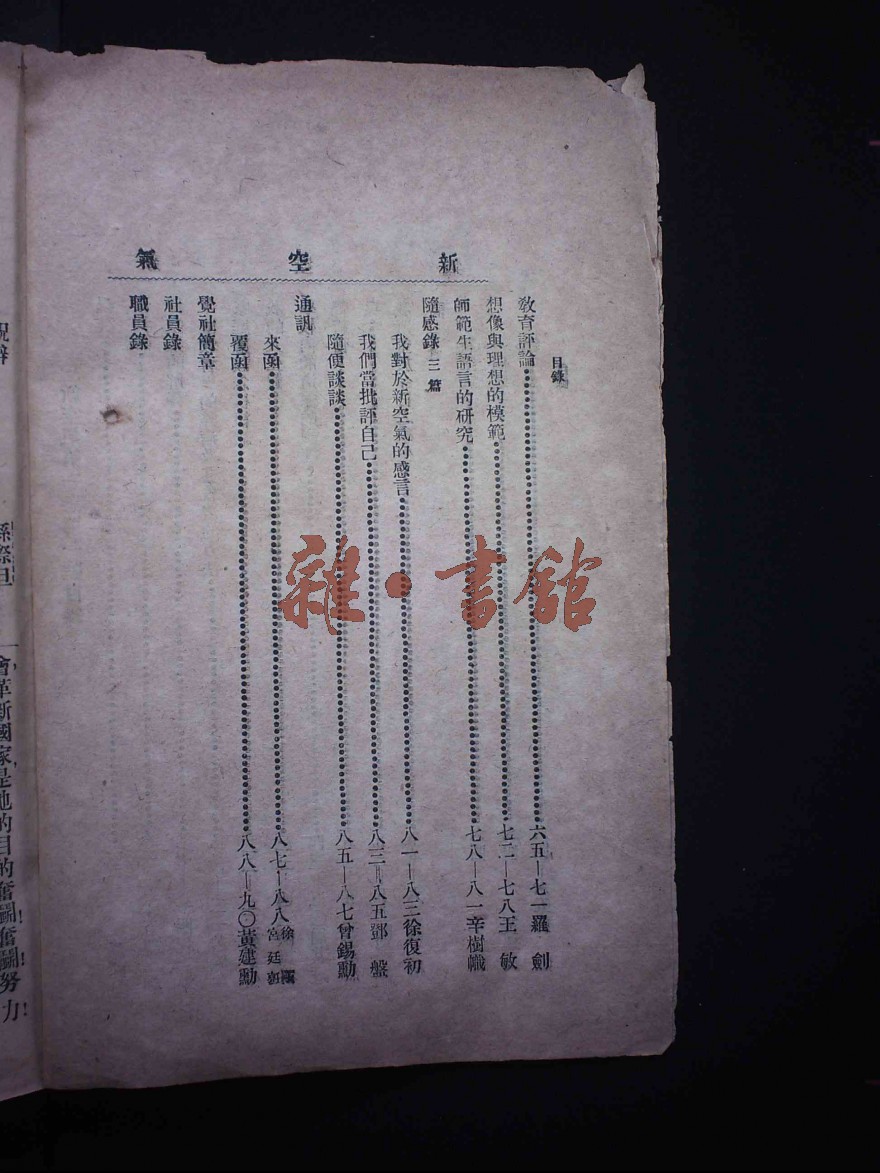 新空氣
目錄
教育評論⋯⋯六五—七一羅　劍
想像與理想的模範⋯⋯七二—七八王　敏
師範生語言的研究⋯⋯七八—八一辛樹幟
隨感錄 三篇
我對於新空氣的感言⋯⋯八一—八三徐復初
我們當批評自己⋯⋯八三—八五鄧　盤
隨便談談⋯⋯八五—八七曾錫勳
通訊
來函⋯⋯八七—八八徐
宮廷
覆函⋯⋯八八—九〇黃建勳
覺社簡章
社員錄
職員錄
會革新國家是他的目的奮鬭!奮鬭!努力!
雜·書館